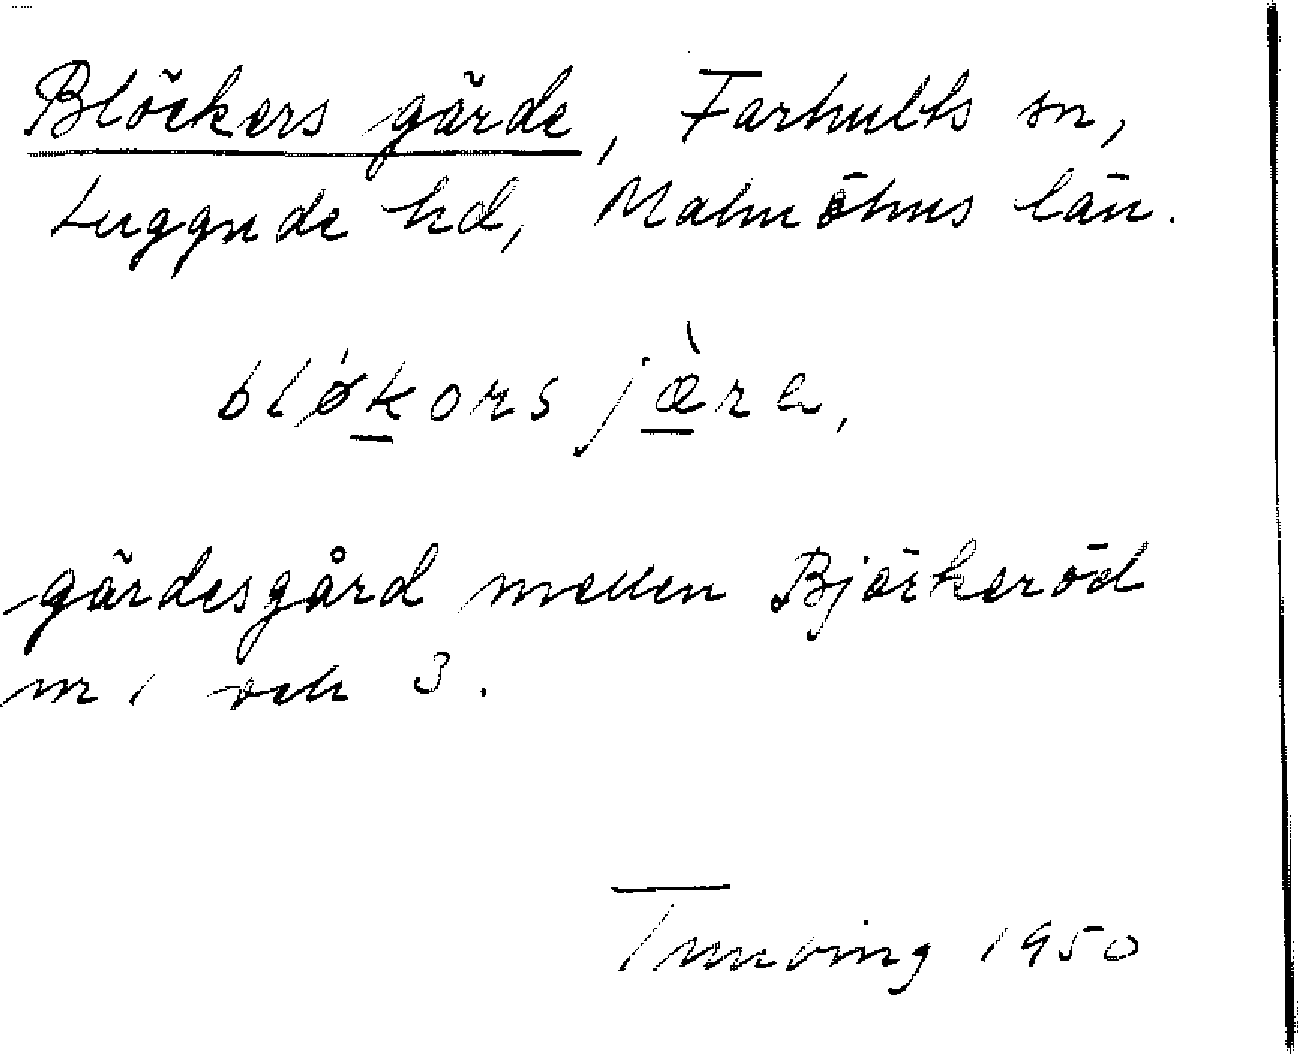 Blöckers gärde, Farhults sn,
Luggude hd, Malmöhus län.
bló̱kors jæ̱̀ra,
gärdesgård mellen Bjäckeröd
nr 1 och 3.
Tunving 1950